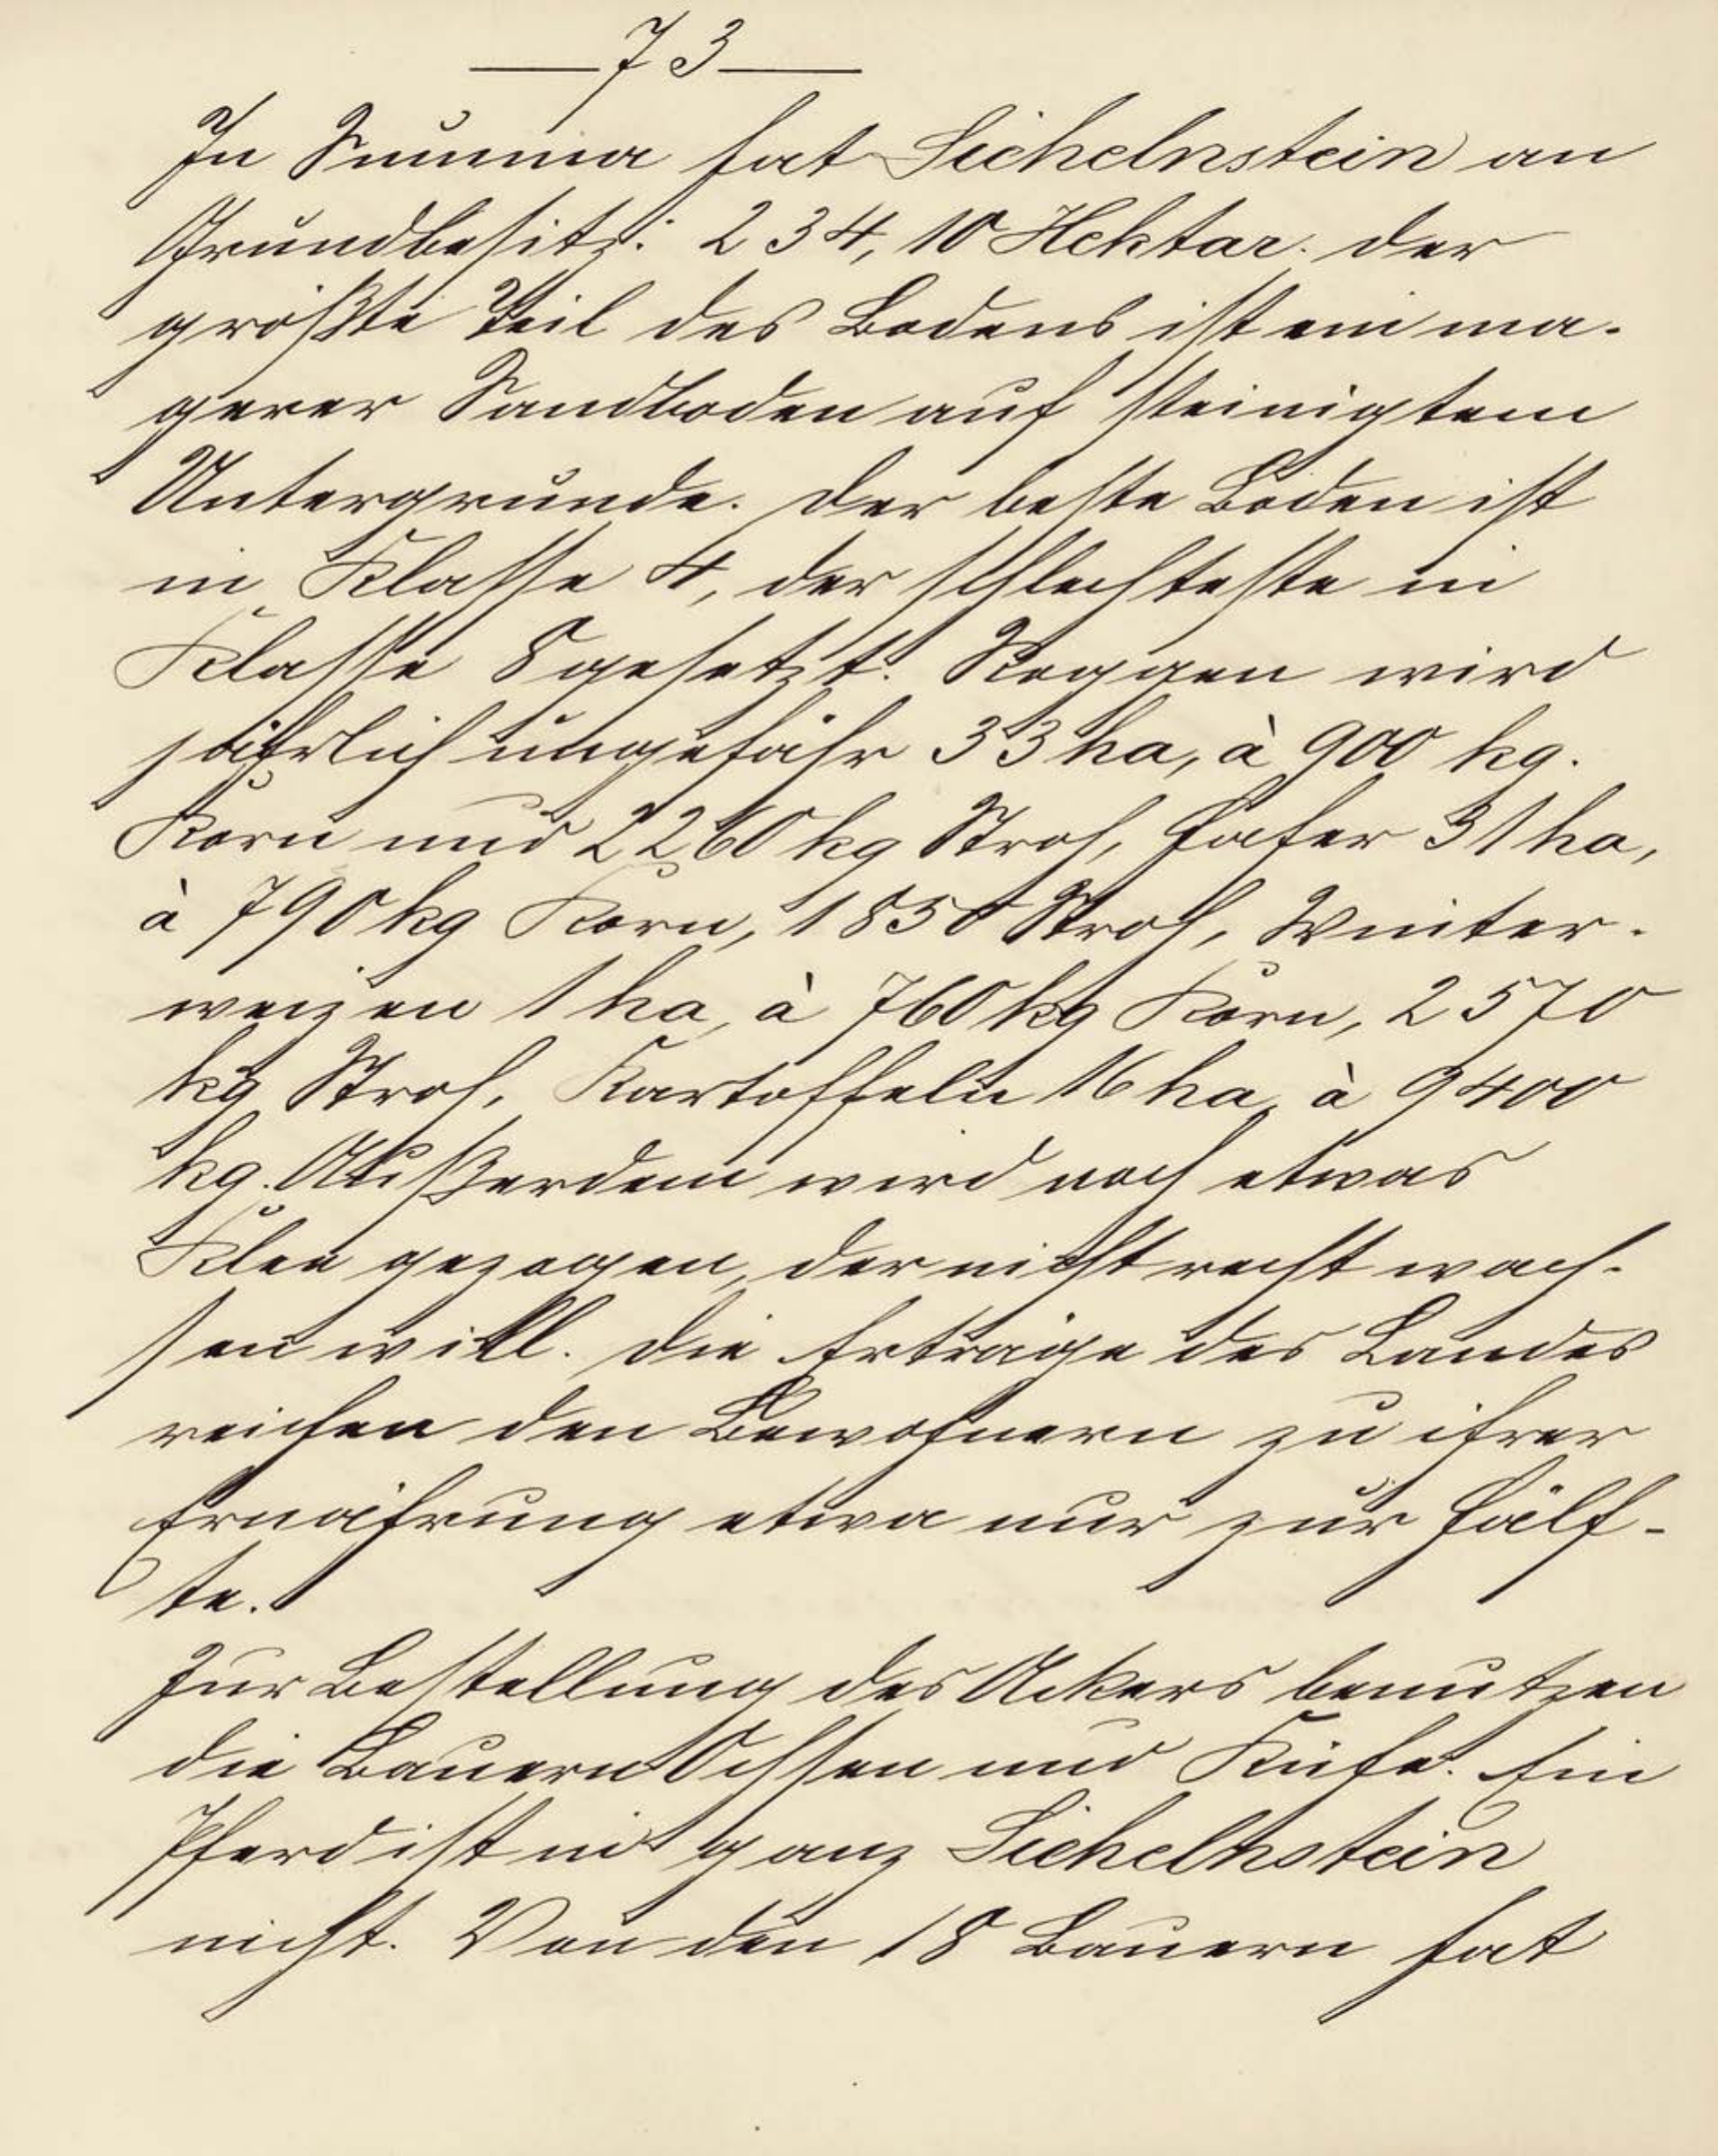 — 73 —
In Summa hat Sichelnstein an
Grundbesitz: 234,10 Hektar. Der
größte Teil des Bodens ist ein ma-
gerer Sandboden auf steinigtem
Untergrunde. Der beste Boden ist
in Klasse 4, der schlechteste in
Klasse 8 gesetzt. Roggen wird
jährlich ungefähr 33 ha, à 900 kg.
Korn und 2260 kg Stroh, Hafer 31 ha,
à 790 kg Korn, 1850 Stroh, Winter-
weizen 1 ha, à 760 kg Korn, 2570
kg Stroh, Kartoffeln 16 ha, à 9400
kg. Außerdem wird noch etwas
Klee gezogen, der nicht recht wach-
sen will. Die Erträge des Landes
reichen den Bewohnern zu ihrer
Ernährung etwa nur zur Hälf-
te.
Zur Bestellung des Ackers benutzen
die Bauern Ochsen und Kühe. Ein
Pferd ist in ganz Sichelnstein
nicht. Von den 18 Bauern hat